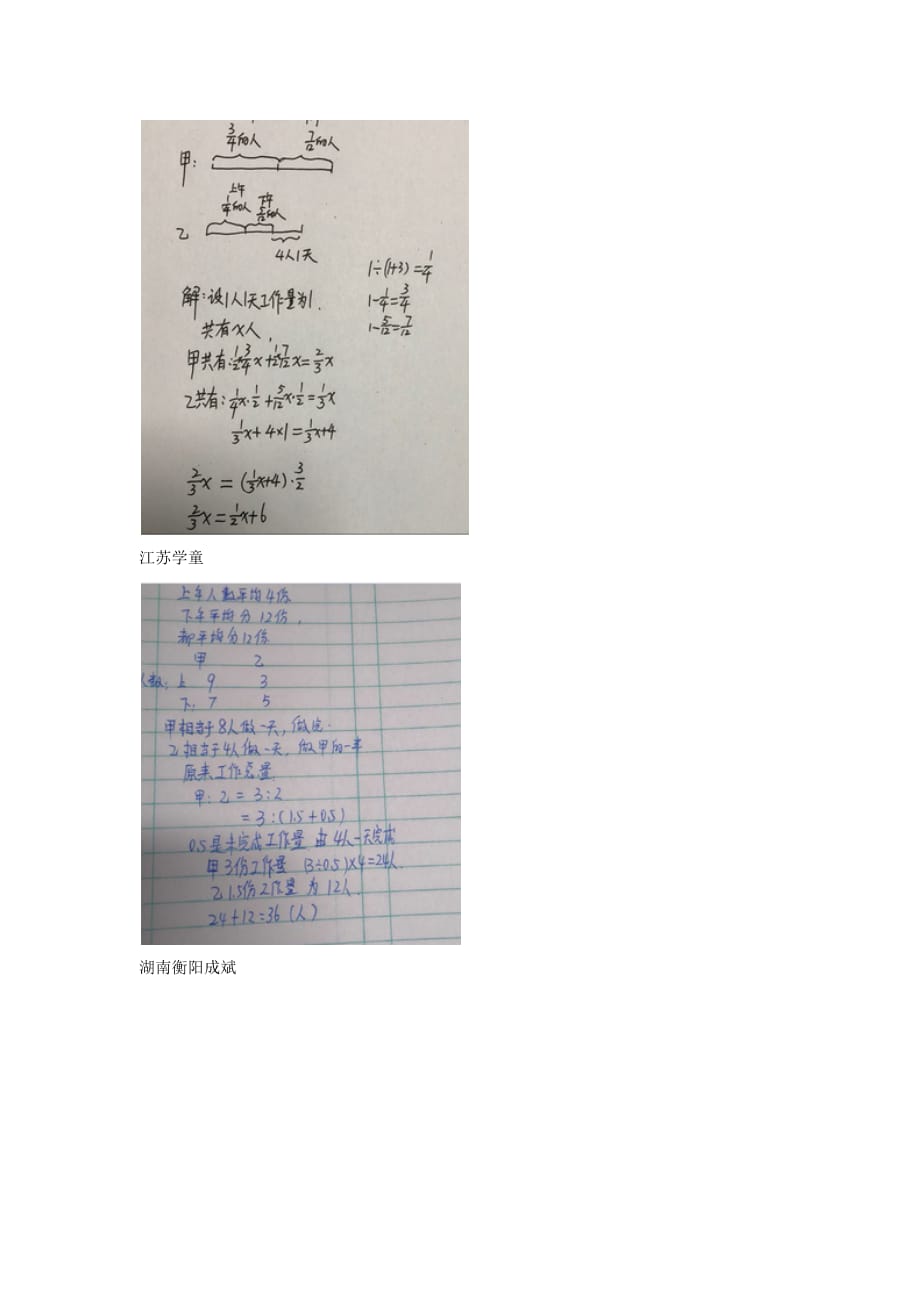 3/4的人 7/12的人
甲:
上午 下午
1/4的人 5/12的人
乙
4人1天
1÷(1+3)=1/4
解:设1人1天工作量为1.
1-1/4=3/4
共有x人,
1-5/12=7/12
甲共有:1/2·3/4x+1/2·7/12x=2/3x
乙共有:1/4x·1/2+5/12x·1/2=1/3x
1/3x+4×1=1/3x+4
2/3x=(1/3x+4)·3/2
2/3x=1/2x+6
江苏学童
上午人数平均4份
下午平均分12份,
都平均分12份
甲 乙
人数:上 9 3
下: 7 5
甲相当于8人做一天,做完.
乙相当于4人做一天,做甲的一半
原来工作总量
甲:乙=3:2
=3:(1.5+0.5)
0.5是未完成工作量 由4人一天完成
甲3份工作量 (3÷0.5)×4=24人.
乙1.5份工作量 为12人.
24+12=36(人)
湖南衡阳成斌